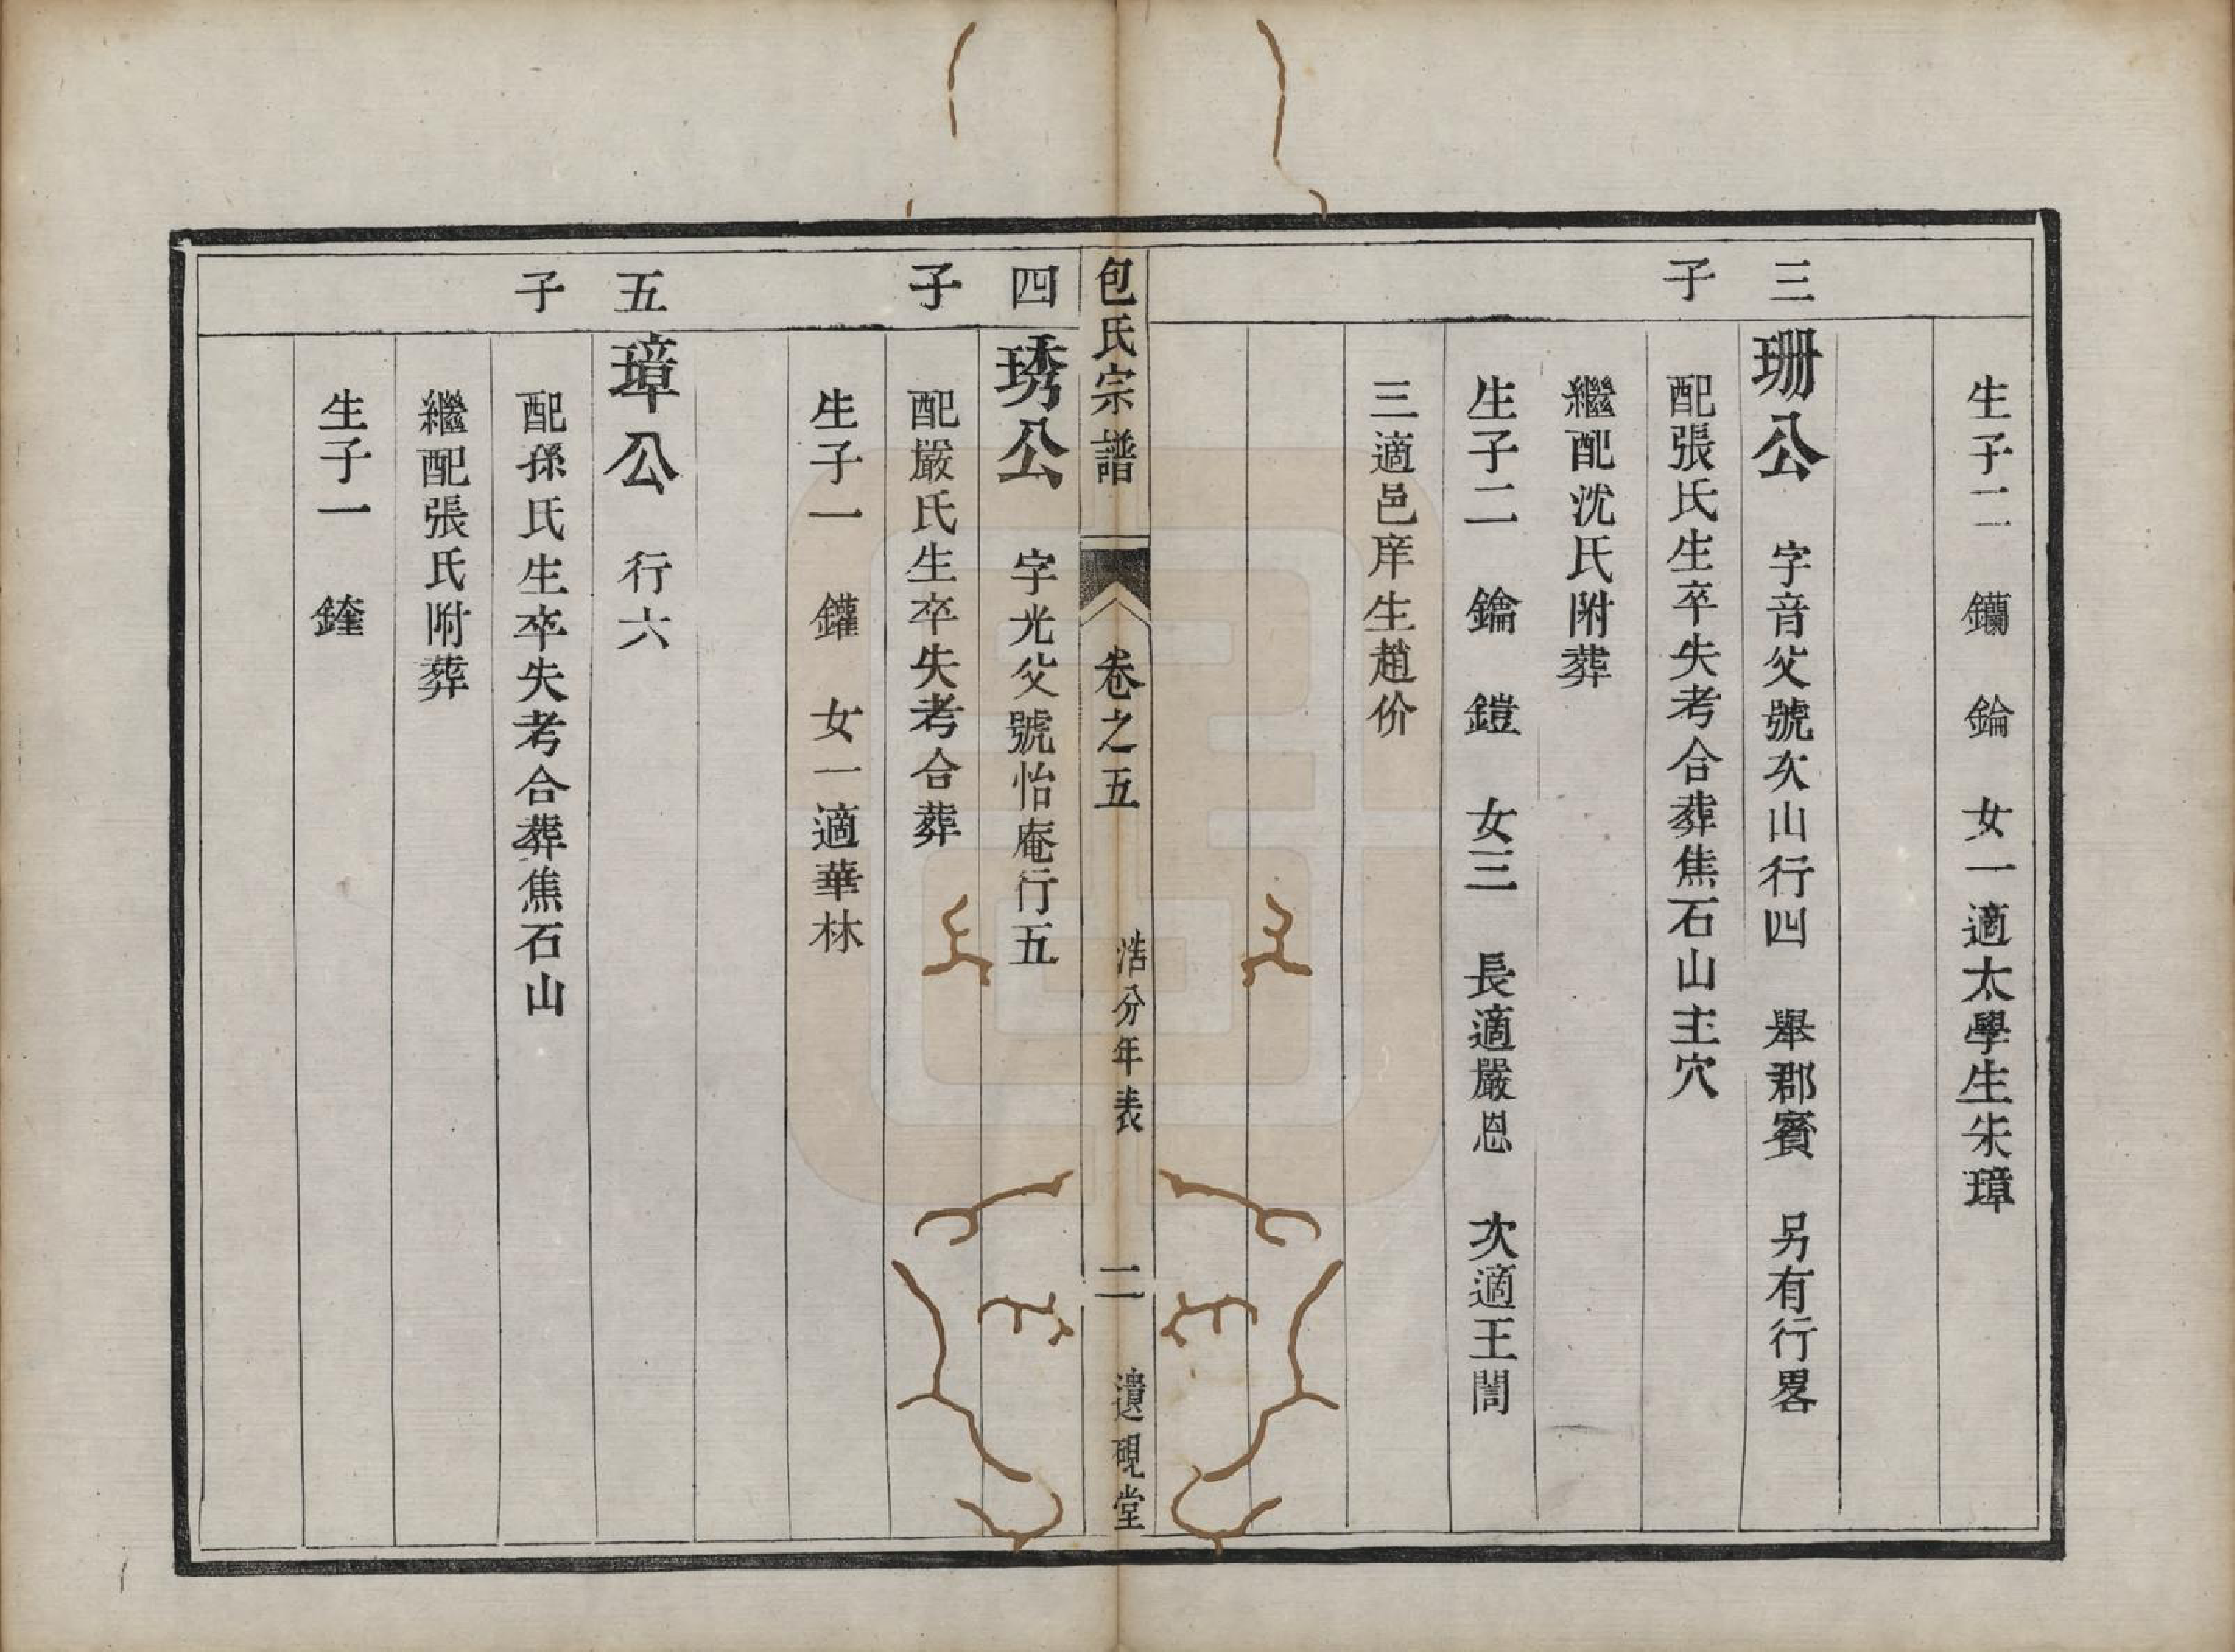 生子二　鑭　錀　女一適太學生朱璋
三子
珊公　字音父號次山行四　舉郡賓　另有行畧
配張氏生卒失考合葬焦石山主穴
繼配沈氏附葬
生子二　鑰　鎧　女三　長適嚴恩　次適王誾
三適邑庠生趙价
包氏宗譜　卷之五　浩分年表　二　遺硯堂
四子
琇公　字光父號怡庵行五
配嚴氏生卒失考合葬
生子一　鑵　女一適華林
五子
璋公　行六
配孫氏生卒失考合葬焦石山
繼配張氏附葬
生子一　鏲